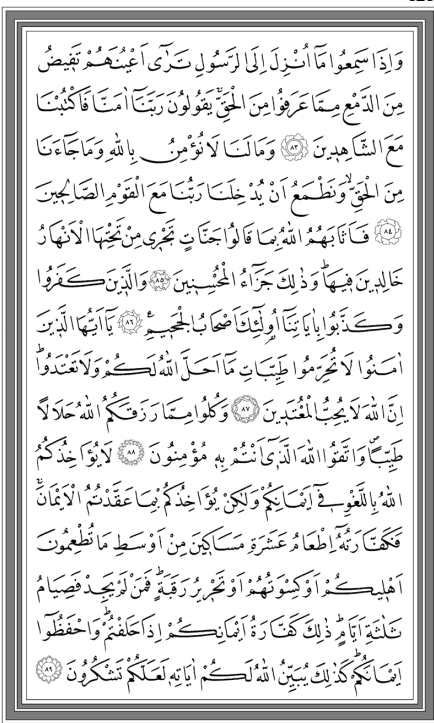 وَاِذَا سَمِعُوا مَٓا اُنْزِلَ اِلَى الرَّسُولِ تَرٰٓى اَعْيُنَهُمْ تَف۪يضُ
مِنَ الدَّمْعِ مِمَّا عَرَفُوا مِنَ الْحَقِّۚ يَقُولُونَ رَبَّنَٓا اٰمَنَّا فَاكْتُبْنَا
مَعَ الشَّاهِد۪ينَ ﴿٨٣﴾ وَمَا لَنَا لَا نُؤْمِنُ بِاللّٰهِ وَمَا جَٓاءَنَا
مِنَ الْحَقِّۙ وَنَطْمَعُ اَنْ يُدْخِلَنَا رَبُّنَا مَعَ الْقَوْمِ الصَّالِح۪ينَ
﴿٨٤﴾ فَاَثَابَهُمُ اللّٰهُ بِمَا قَالُوا جَنَّاتٍ تَجْر۪ي مِنْ تَحْتِهَا الْاَنْهَارُ
خَالِد۪ينَ ف۪يهَاۜ وَذٰلِكَ جَزَٓاءُ الْمُحْسِن۪ينَ ﴿٨٥﴾ وَالَّذ۪ينَ كَفَرُوا
وَكَذَّبُوا بِاٰيَاتِنَٓا اُو۬لٰٓئِكَ اَصْحَابُ الْجَح۪يمِ۟ ﴿٨٦﴾ يَٓا اَيُّهَا الَّذ۪ينَ
اٰمَنُوا لَا تُحَرِّمُوا طَيِّبَاتِ مَٓا اَحَلَّ اللّٰهُ لَكُمْ وَلَا تَعْتَدُواۜ
اِنَّ اللّٰهَ لَا يُحِبُّ الْمُعْتَد۪ينَ ﴿٨٧﴾ وَكُلُوا مِمَّا رَزَقَكُمُ اللّٰهُ حَلَالًا
طَيِّبًاۖ وَاتَّقُوا اللّٰهَ الَّذ۪ٓي اَنْتُمْ بِه۪ مُؤْمِنُونَ ﴿٨٨﴾ لَا يُؤَاخِذُكُمُ
اللّٰهُ بِاللَّغْوِ ف۪ٓي اَيْمَانِكُمْ وَلٰكِنْ يُؤَاخِذُكُمْ بِمَا عَقَّدْتُمُ الْاَيْمَانَۚ
فَكَفَّارَتُهُٓ اِطْعَامُ عَشَرَةِ مَسَاك۪ينَ مِنْ اَوْسَطِ مَا تُطْعِمُونَ
اَهْل۪يكُمْ اَوْ كِسْوَتُهُمْ اَوْ تَحْر۪يرُ رَقَبَةٍۜ فَمَنْ لَمْ يَجِدْ فَصِيَامُ
ثَلٰثَةِ اَيَّامٍۜ ذٰلِكَ كَفَّارَةُ اَيْمَانِكُمْ اِذَا حَلَفْتُمْۜ وَاحْفَظُٓوا
اَيْمَانَكُمْۜ كَذٰلِكَ يُبَيِّنُ اللّٰهُ لَكُمْ اٰيَاتِه۪ لَعَلَّكُمْ تَشْكُرُونَ ﴿٨٩﴾